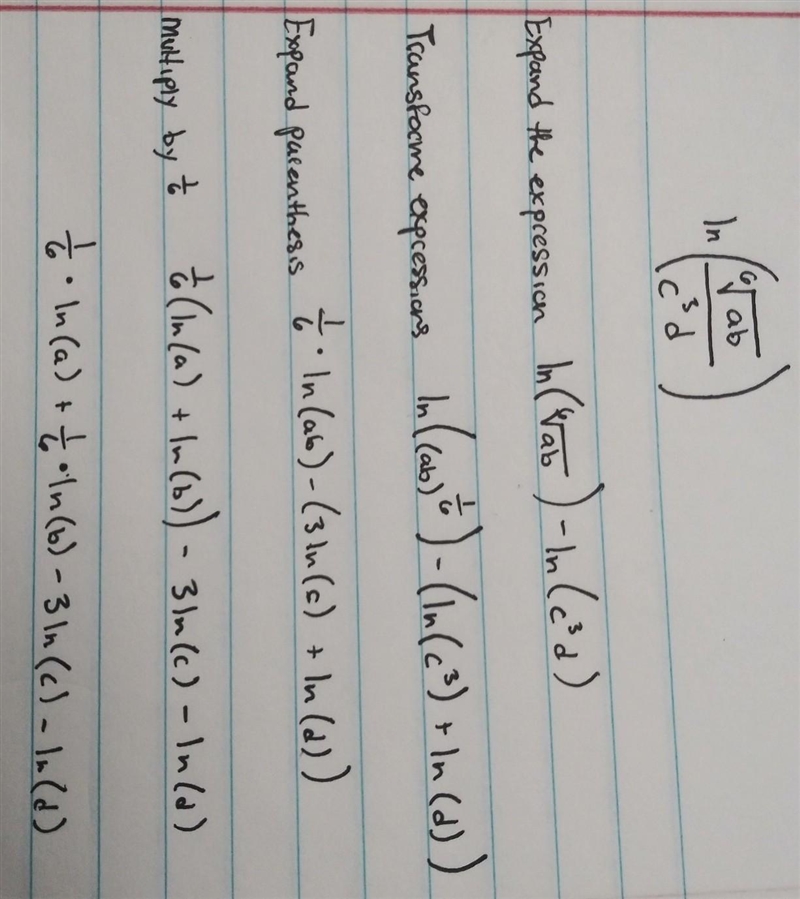 ln(⁶√ab / c³d)
Expand the expression ln(⁶√ab) - ln(c³d)
Transforme expressions ln((ab)^1/6) - (ln(c³) + ln(d))
Expand parenthesis 1/6 · ln(ab) - (3ln(c) + ln(d))
Multiply by 1/6 1/6(ln(a) + ln(b)) - 3ln(c) - ln(d)
1/6 · ln(a) + 1/6 · ln(b) - 3ln(c) - ln(d)